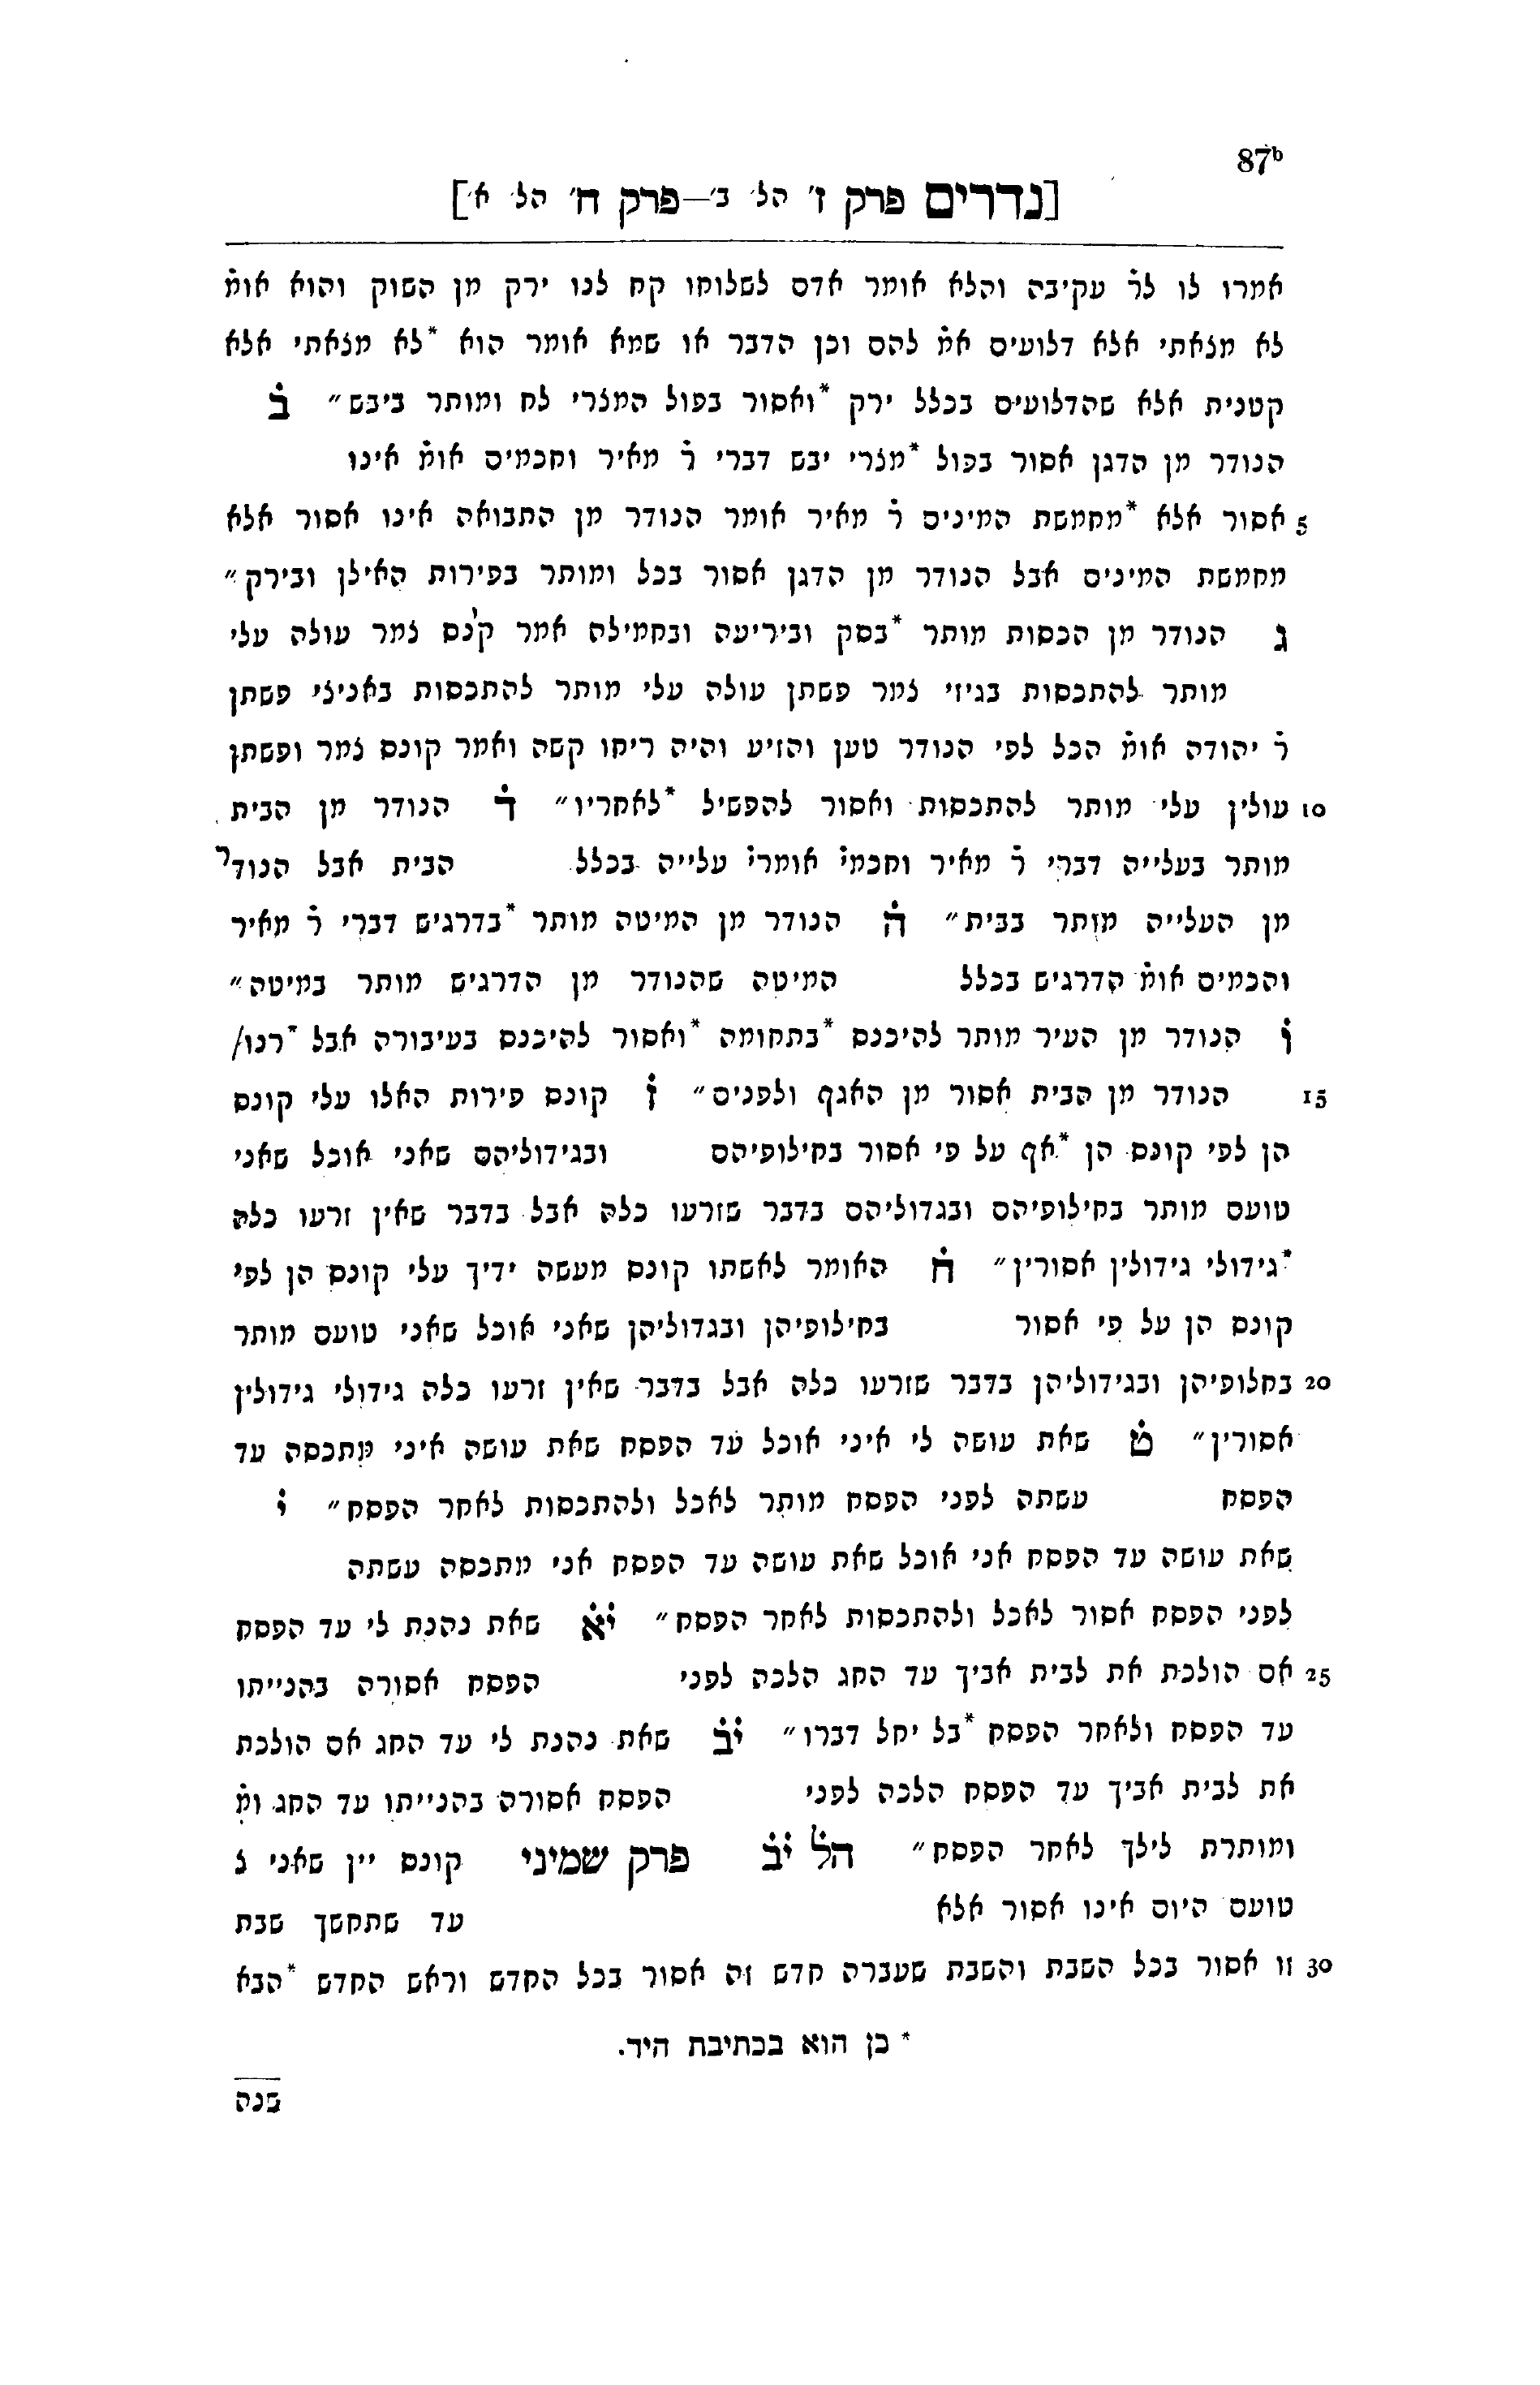 87ᵇ
[נדרים פרק ז' הל' ב'—פרק ח' הל' א']
אמרו לו לר̇ עקיבה והלא אומר אדם לשלוחו קח לנו ירק מן השוק והוא אומ̇
לא מצאתי אלא דלועים אמ̇ להם וכן הדבר או שמא אומר הוא *לא מצאתי אלא
קטנית אלא שהדלועים בכלל ירק *ואסור בפול המצרי לח ומותר ביבש״ ב̇
הנודר מן הדגן אסור בפול *מצרי יבש דברי ר̇ מאיר וחכמים אומ̇ אינו
5 אסור אלא *מחמשת המינים ר̇ מאיר אומר הנודר מן התבואה אינו אסור אלא
מחמשת המינים אבל הנודר מן הדגן אסור בכל ומותר בפירות האילן ובירק״
ג הנודר מן הכסות מותר *בסק וביריעה ובחמילה אמר קונם צמר עולה עלי
מותר להתכסות בגיזי צמר פשתן עולה עלי מותר להתכסות באניצי פשתן
ר̇ יהודה אומ̇ הכל לפי הנודר טען והזיע והיה ריחו קשה ואמר קונם צמר ופשתן
10 עולין עלי מותר להתכסות ואסור להפשיל *לאחריו״ ד̇ הנודר מן הבית
מותר בעלייה דברי ר̇ מאיר וחכמי̇ אומרי̇ עלייה בכלל הבית אבל הנודר
מן העלייה מותר בבית״ ה̇ הנודר מן המיטה מותר *בדרגיש דברי ר̇ מאיר
והכמים אומ̇ הדרגיש בכלל המיטה שהנודר מן הדרגיש מותר במיטה״
ו̇ הנודר מן העיר מותר להיכנס *בתחומה *ואסור להיכנס בעיבורה אבל *רנו/
15 הנודר מן הבית אסור מן האגף ולפנים״ ז̇ קונם פירות האלו עלי קונם
הן לפי קונם הן *אף על פי אסור בחילופיהם ובגידוליהם שאני אוכל שאני
טועם מותר בחילופיהם ובגדוליהם בדבר שזרעו כלה אבל בדבר שאין זרעו כלה
*גידולי גידולין אסורין״ ח̇ האומר לאשתו קונם מעשה ידיך עלי קונם הן לפי
קונם הן על פי אסור בחילופיהן ובגדוליהן שאני אוכל שאני טועם מותר
20 בחלופיהן ובגידוליהן בדבר שזרעו כלה אבל בדבר שאין זרעו כלה גידולי גידולין
אסורין״ ט̇ שאת עושה לי איני אוכל עד הפסח שאת עושה איני מתכסה עד
הפסח עשתה לפני הפסח מותר לאכל ולהתכסות לאחר הפסח״ י̇
שאת עושה עד הפסח אני אוכל שאת עושה עד הפסח אני מתכסה עשתה
לפני הפסח אסור לאכל ולהתכסות לאחר הפסח״ י̇א̇ שאת נהנת לי עד הפסח
25 אם הולכת את לבית אביך עד החג הלכה לפני הפסח אסורה בהנייתו
עד הפסח ולאחר הפסח *בל יחל דברו״ י̇ב̇ שאת נהנת לי עד החג אם הולכת
את לבית אביך עד הפסח הלכה לפני הפסח אסורה בהנייתו עד החג ומ̇
ומותרת לילך לאחר הפסח״ הל̇ י̇ב̇ פרק שמיני קונם יין שאני ל
טועם היום אינו אסור אלא עד שתחשך שבת
30 זו אסור בכל השבת והשבת שעברה חדש זה אסור בכל החדש וראש החדש *הבא
* כן הוא בכתיבת היד.
שנה